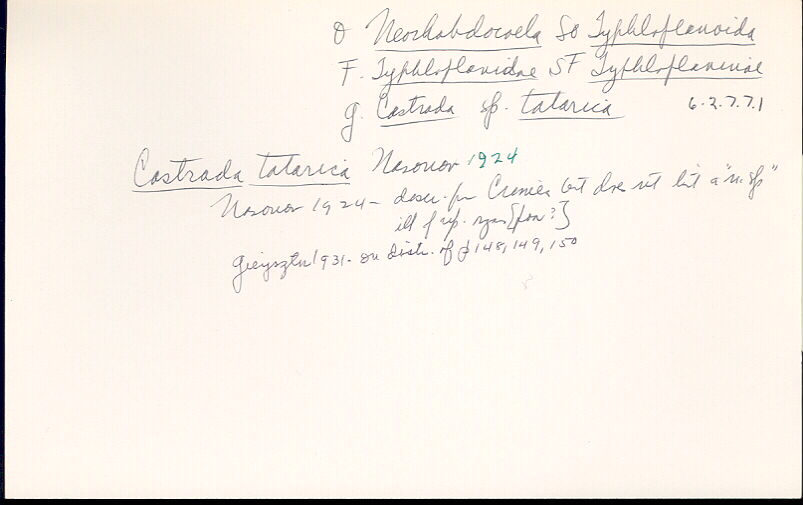 O Neorhabdocoela SO Typhloplanoida
F. Typhloplanidae SF Typhloplaninae
g. Castrada sp. tatarica 6.2.7.7.1
Castrada tatarica Nasonov 1924
Nasonov 1924 - descr. for Crimea but does not list a "n. sp"
ill of rep. organ [for?]
Gieysztor 1931 - on distr. of p 148, 149, 150